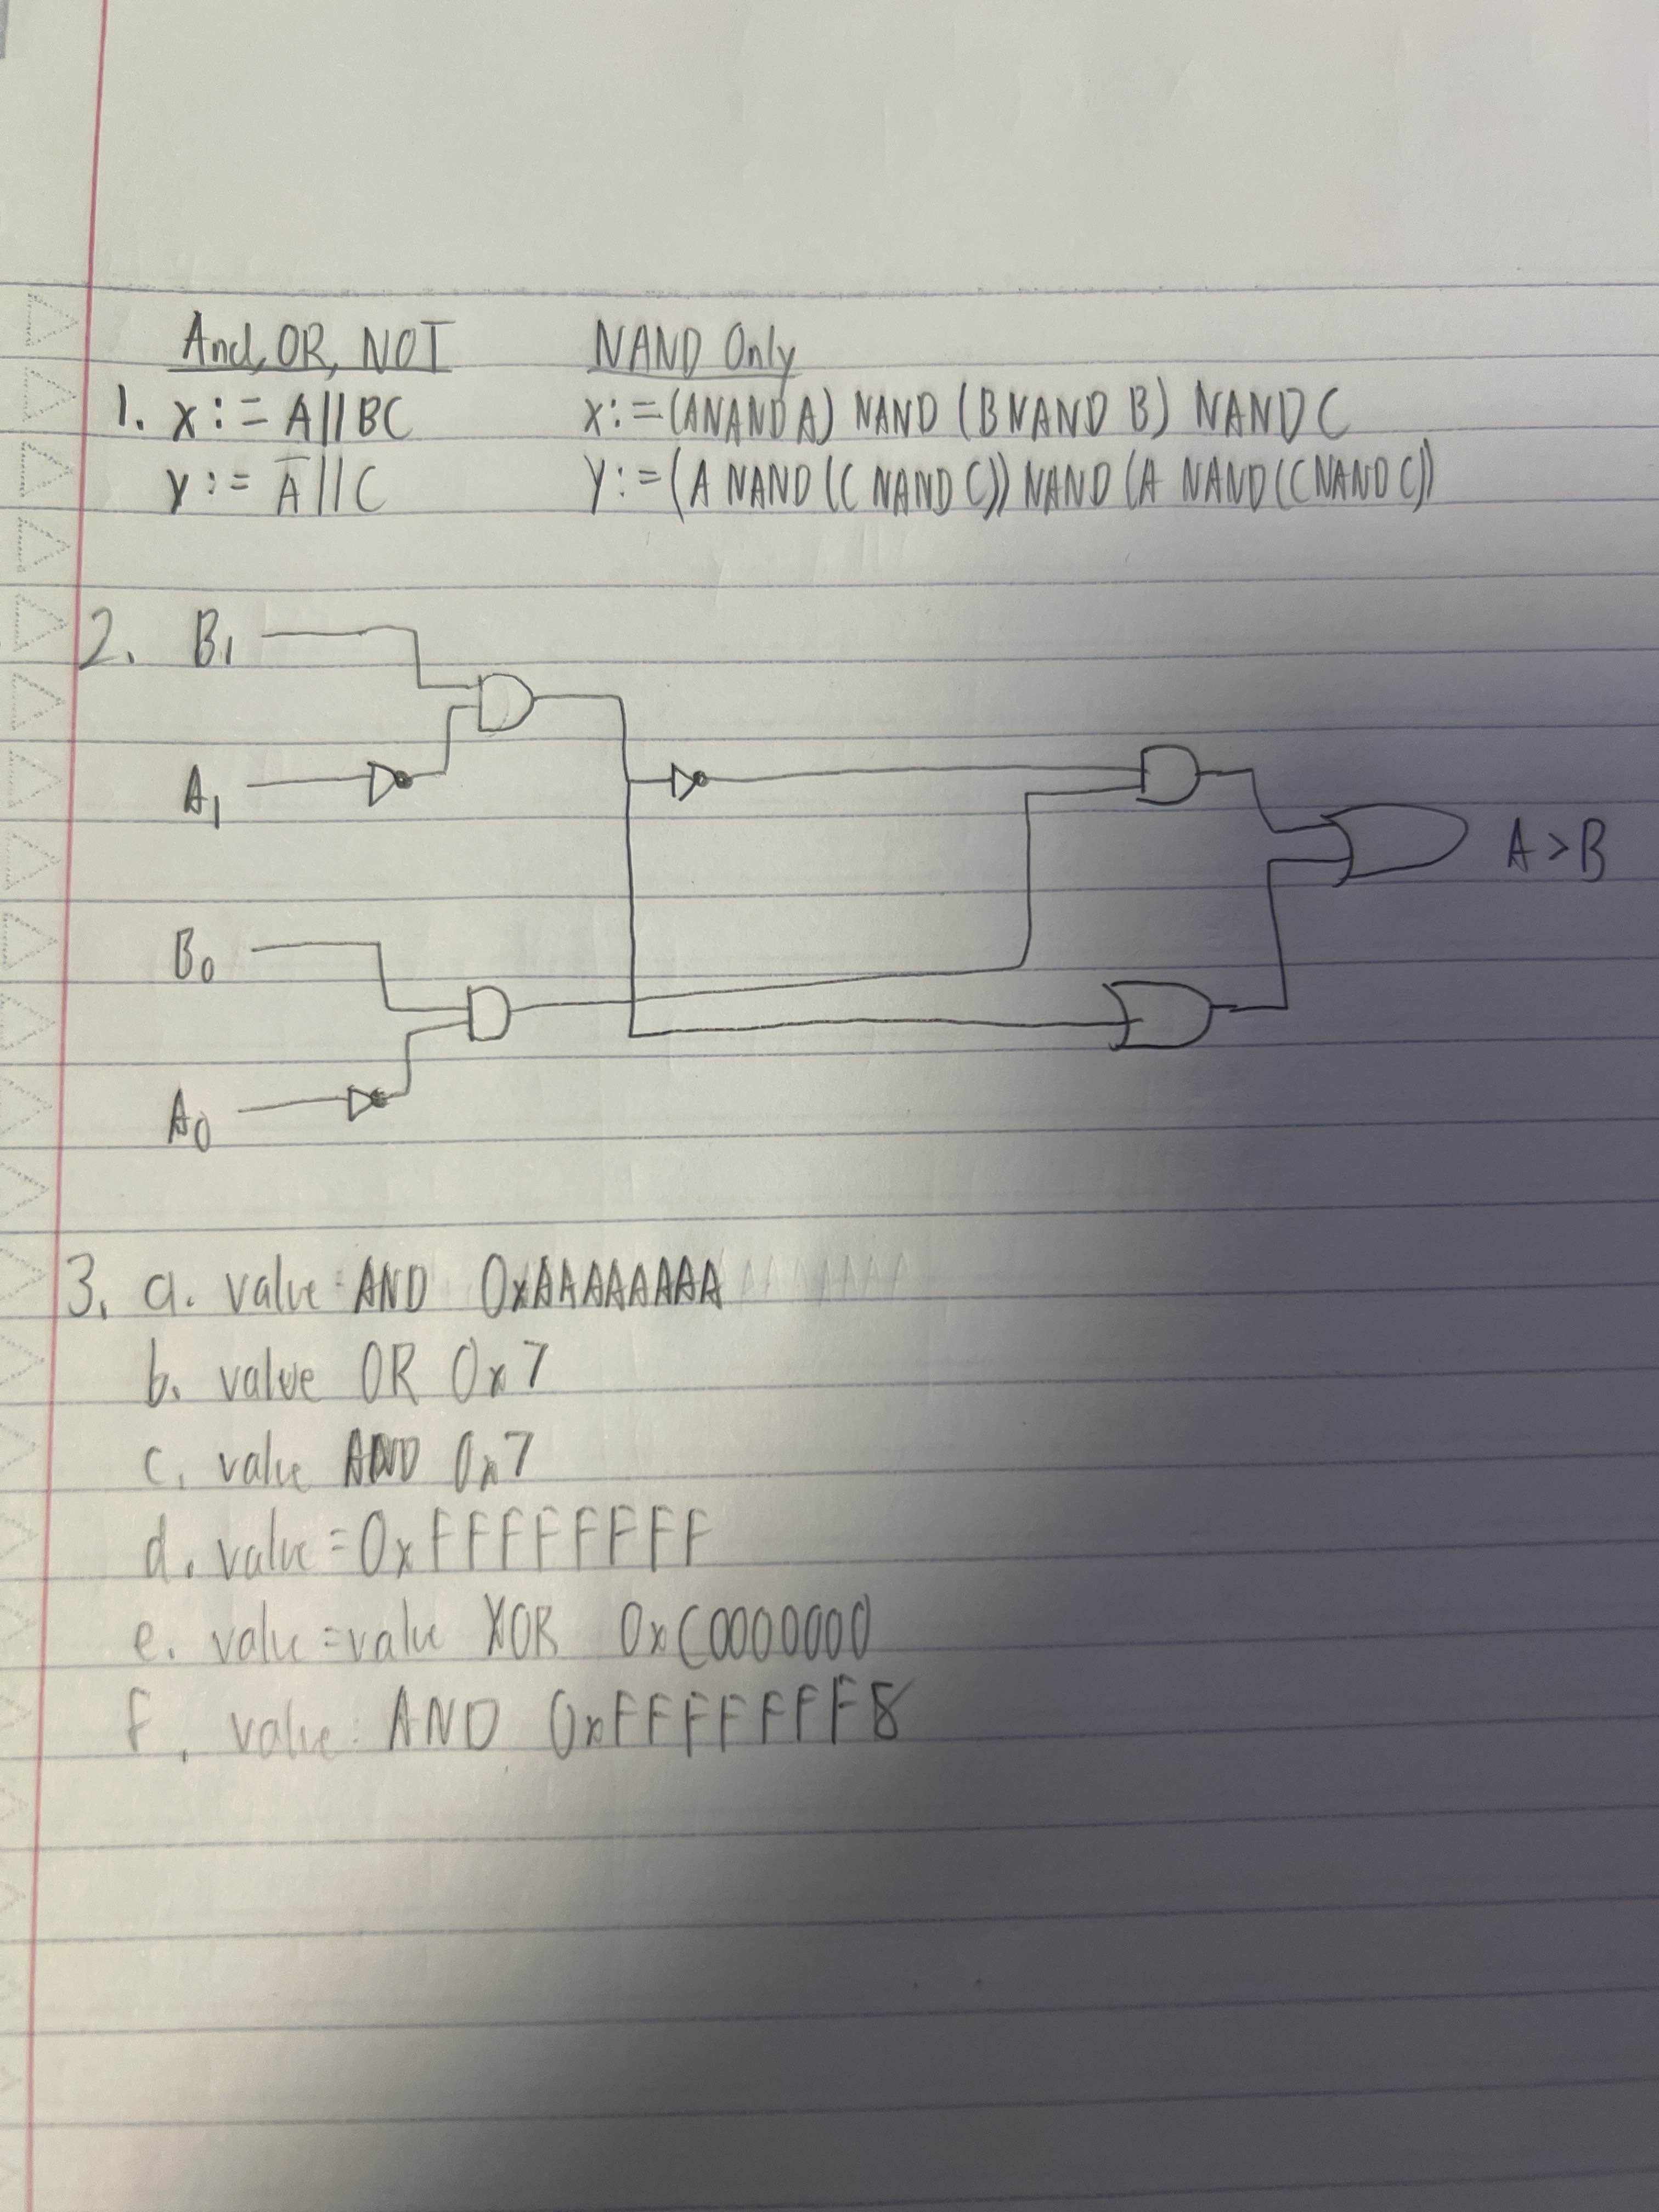 And, OR, NOT NAND Only
1. X := A||BC X:=(ANANDA) NAND (BNAND B) NANDC
Y := A̅||C Y:=(A NAND(C NAND C)) NAND (A NAND(CNAND C))
2. B₁
A₁
A>B
B₀
A₀
3. a. value AND 0xAAAAAAAA
b. value OR 0x7
c. value AND 0x7
d. value=0xFFFFFFFF
e. value=value XOR 0xC0000000
f. value AND 0xFFFFFFF8